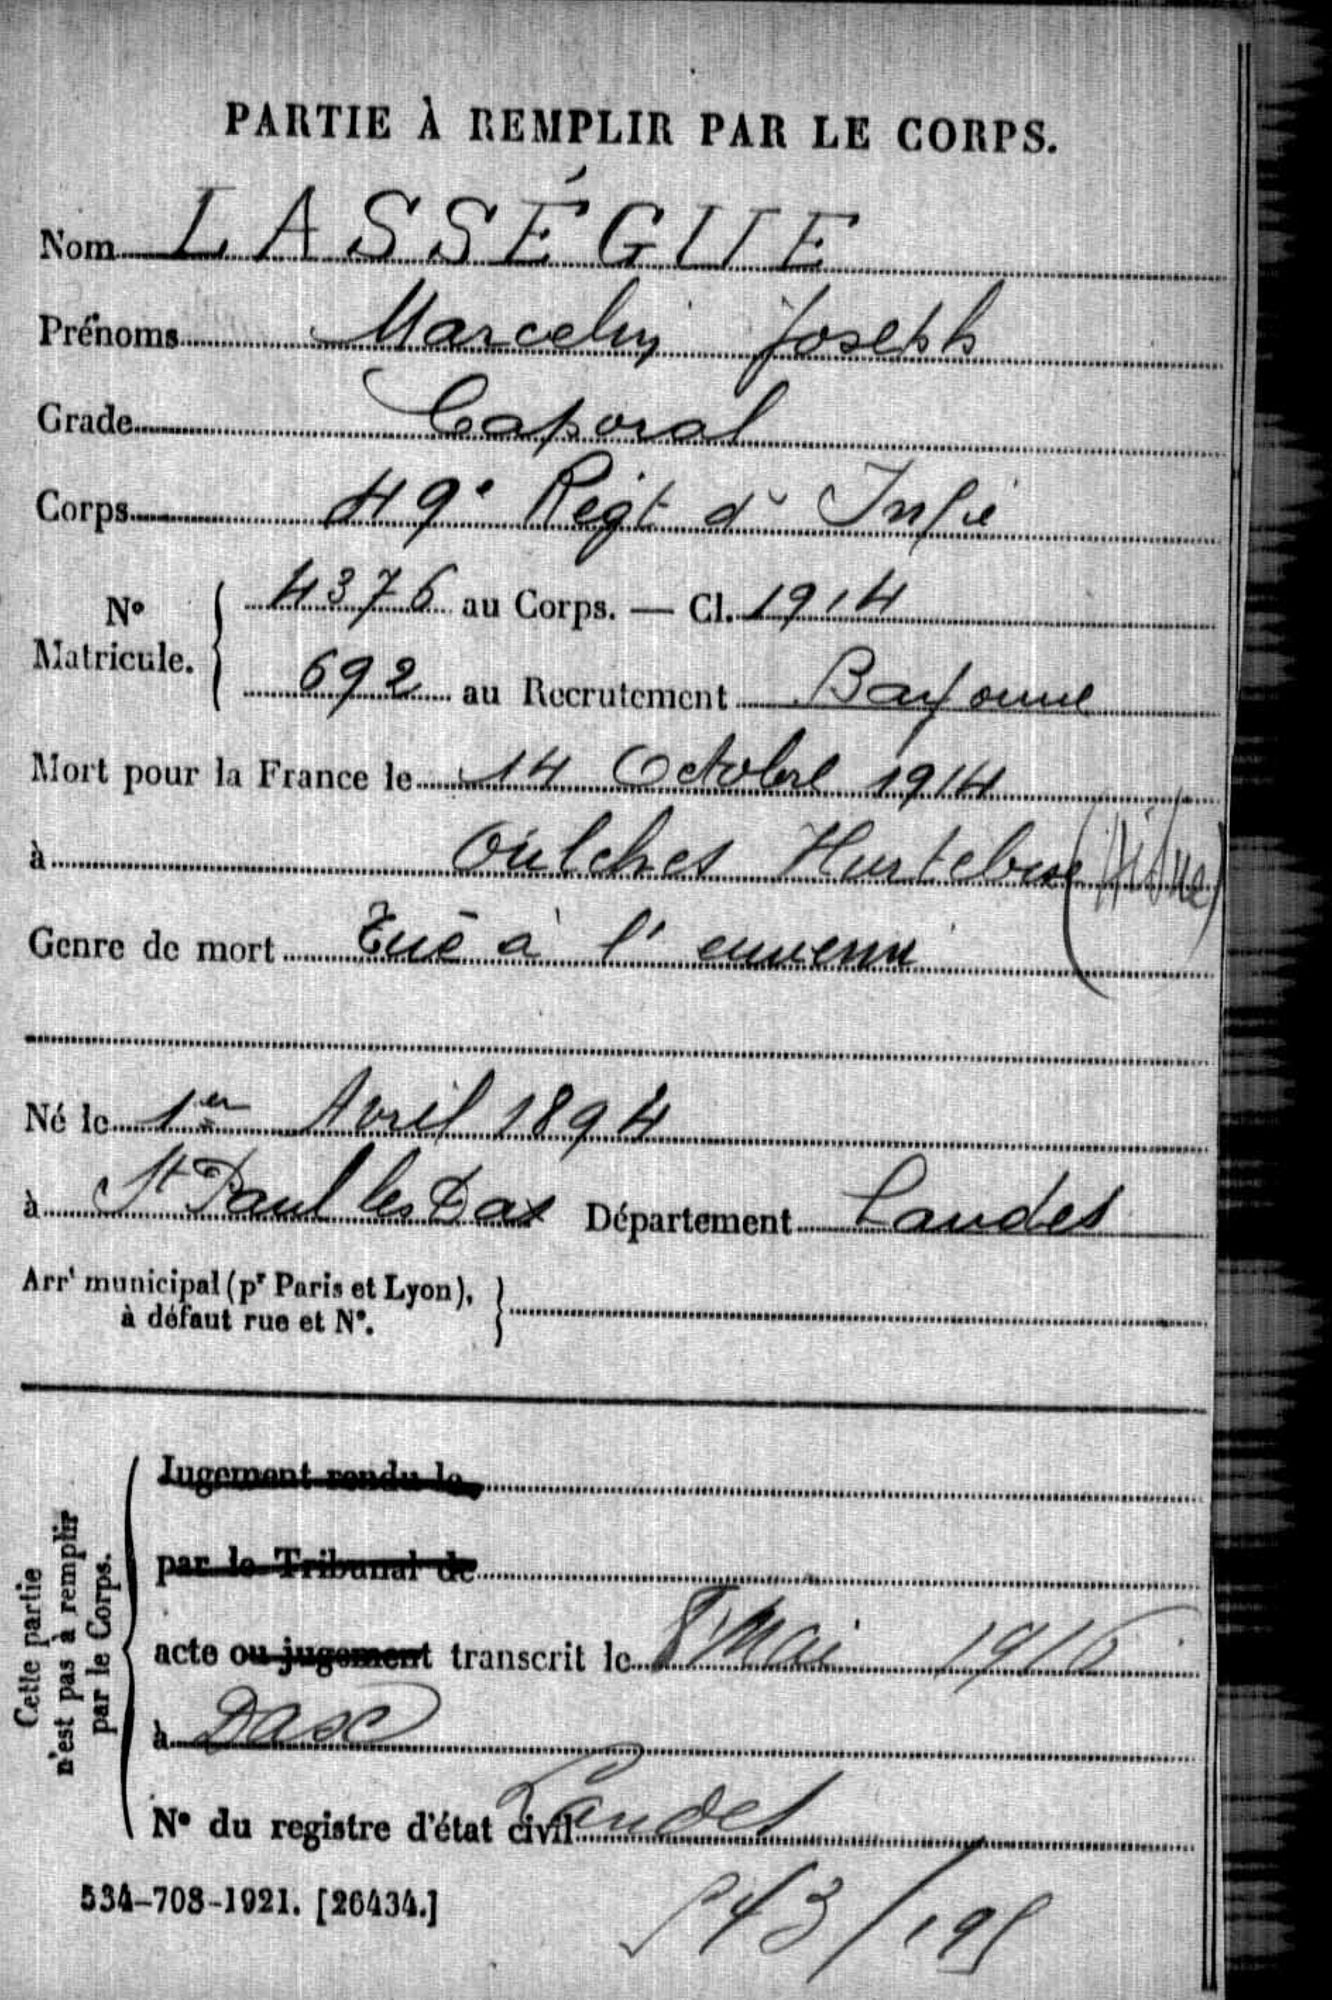 PARTIE À REMPLIR PAR LE CORPS.
Nom LASSÉGUE
Prénoms Marcelin Joseph
Grade Caporal
Corps 49e Régt d' Infie
No Matricule. 4376 au Corps. — Cl. 1914
692 au Recrutement Bayonne
Mort pour la France le 14 Octobre 1914
à Oulches Hurtebise (Aisne)
Genre de mort Tué à l'ennemi
Né le 1er Avril 1894
à St Paul les Dax Département Landes
Arrt municipal (pr Paris et Lyon),
à défaut rue et No.
Cette partie
n'est pas à remplir
par le Corps.
Jugement rendu le
par le Tribunal de
acte ou jugement transcrit le 8 Mai 1916
à Dax
Landes
No du registre d'état civil
534-708-1921. [26434.]